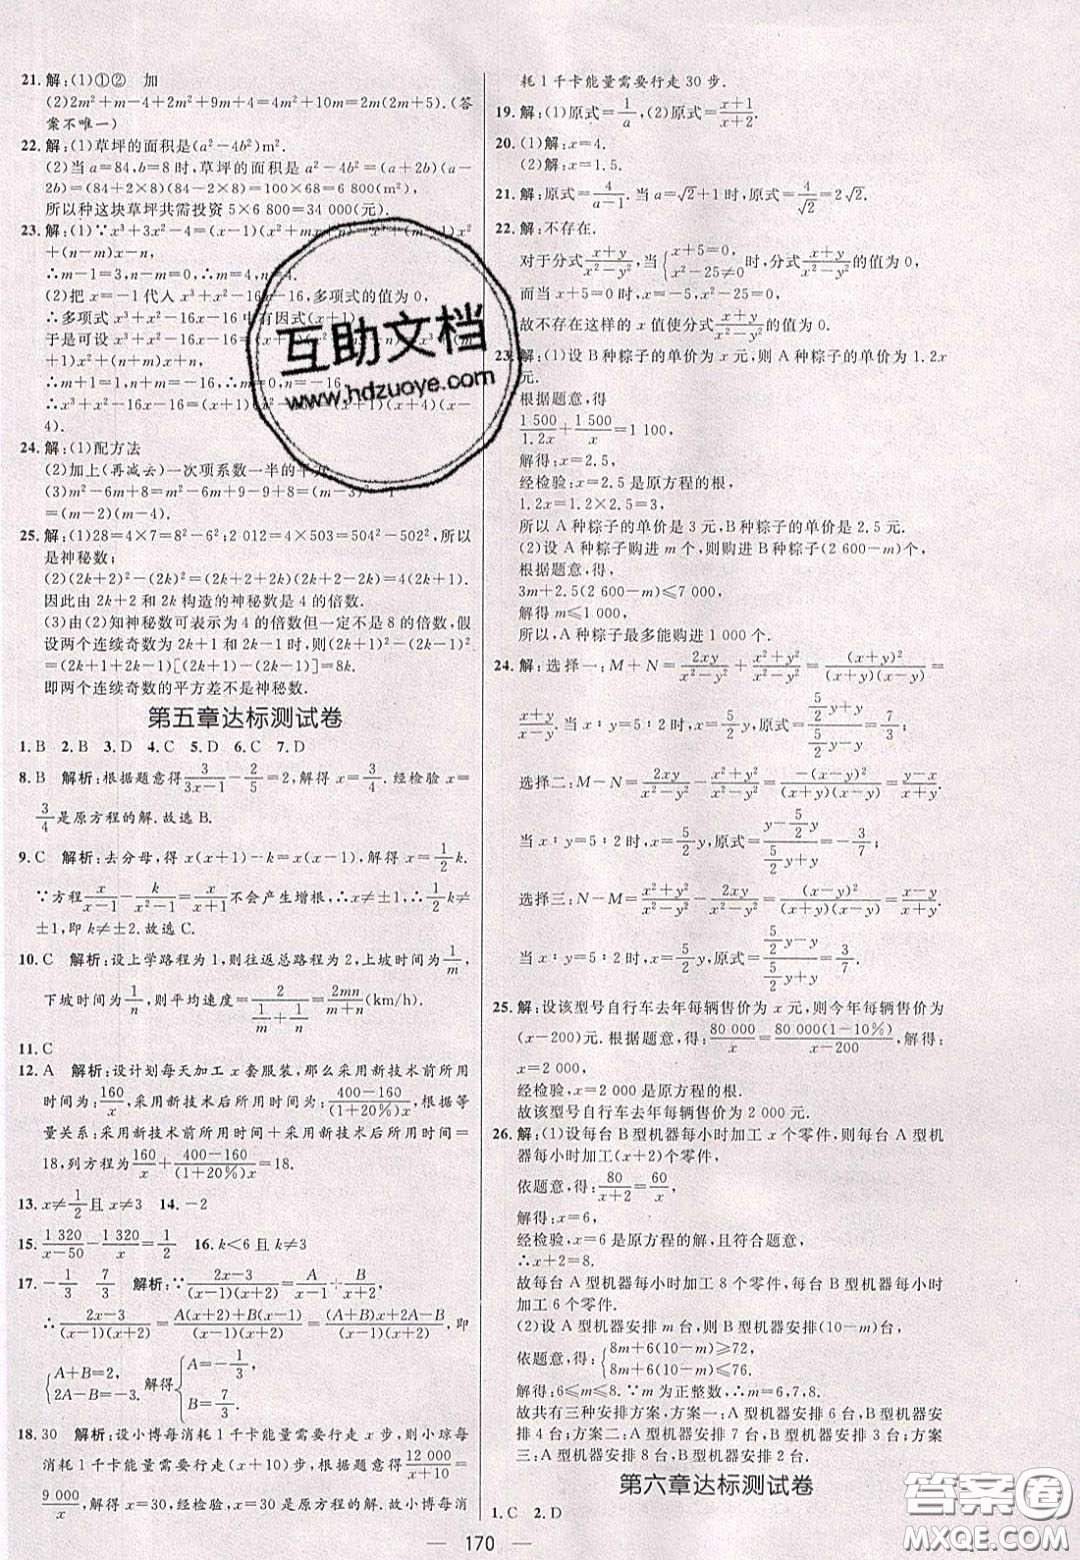 21. 解:(1)①② 加
(2)2m²+m-4+2m²+9m+4=4m²+10m=2m(2m+5).(答
案不唯一)
22. 解:(1)草坪的面积是(a²-4b²)m².
(2)当a=84,b=8时,草坪的面积是a²-4b²=(a+2b)(a-
2b)=(84+2×8)(84-2×8)=100×68=6 800(m²),
所以种这块草坪共需投资5×6 800=34 000(元).
23. 解:(1)∵x³+3x²-4=(x-1)
+(n-m)x-n,
∴m-1=3,n-m=0,∴m=4,n=4.
(2)把x=-1代入x³+x²-16x-16,多项式的值为0,
∴多项式x³+x²-16x-16中有因式(x+1),
于是可设x³+x²-16x-
∴m+1=1,n+m=-16,
∴x³+x²-16x-16=(x+1)
4).
24. 解:(1)配方法
(2)加上(再减去)一次项系数一半的平方
(3)m²-6m+8=m²-6m+9-1=(m-3)²-1
=(m-2)(m-4).
25. 解:(1)28=4×7=8²-6²;2 012=4×503=504²-502²,所以
是神秘数;
(2)(2k+2)²-(2k)²=(2k+2-2k)(2k+2+2k)=4(2k+1).
因此由2k+2和2k构造的神秘数是4的倍数.
(3)由(2)知神秘数可表示为4的倍数但一定不是8的倍数,假
设两个连续奇数为2k+1和2k-1时,则(2k+1)²-(2k-1)²
=(2k+1+2k-1)[(2k+1)-(2k-1)]=8k.
即两个连续奇数的平方差不是神秘数.
第五章达标测试卷
1. B 2. B 3. D 4. C 5. D 6. C 7. D
8. B 解析:根据题意得3/(3x-1)-2/5=2,解得x=3/4.经检验x=
3/4是原方程的解.故选B.
9. C 解析:去分母,得x(x+1)-k=x(x-1),解得x=1/2k.
∵方程x/(x-1)-k/(x²-1)=x/(x+1)不会产生增根,∴x≠±1,∴1/2k≠
±1,即k≠±2.故选C.
10. C 解析:设上学路程为1,则往返总路程为2,上坡时间为1/m,
下坡时间为1/n,则平均速度=2/(1/m+1/n)=2mn/(m+n)(km/h).
11. C
12. A 解析:设计划每天加工x套服装,那么采用新技术前所用
时间为:160/x,采用新技术后所用时间为:(400-160)/((1+20%)x),根据等
量关系:采用新技术前所用时间+采用新技术后所用时间=
18,列方程为160/x+(400-160)/((1+20%)x)=18.
13. x≠1/2且x≠3 14. -2
15. 1 320/(x-50)-1 320/x=1/2 16. k<6且k≠3
17. -1/3 7/3 解析:∵(2x-3)/((x-1)(x+2))=A/(x-1)+B/(x+2),
∴(2x-3)/((x-1)(x+2))=(A(x+2)+B(x-1))/((x-1)(x+2))=((A+B)x+2A-B)/((x-1)(x+2)),即
{A+B=2, 2A-B=-3. 解得{A=-1/3, B=7/3.
18. 30 解析:设小博每消耗1千卡能量需要行走x步,则小琼每
消耗1千卡能量需要行走(x+10)步;根据题意得12 000/(x+10)=
9 000/x,解得x=30,经检验,x=30是原方程的解.故小博每消
耗1千卡能量需要行走30步.
19. 解:(1)原式=1/a,(2)原式=(x+1)/(x+3).
20. (1)解:x=4.
(2)解:x=1.5.
21. 解:原式=4/(a-1).当a=√2+1时,原式=4/√2=2√2.
22. 解:不存在.
对于分式(x+y)/(x²-y²),当{x+5=0, x²-25≠0时,分式(x+y)/(x²-y²)的值为0,
而当x+5=0时,x=-5,x²-25=0,
故不存在这样的x值使分式(x+y)/(x²-y²)的值为0.
23. 解:(1)设B种粽子的单价为x元,则A种粽子单价为1.2x
元.
根据题意,得
1 500/1.2x+1 500/x=1 100,
解得:x=2.5,
经检验,x=2.5是原方程的根,
1.2x=1.2×2.5=3,
所以A种粽子的单价是3元,B种粽子的单价是2.5元.
(2)设A种粽子购进m个,则购进B种粽子(2 600-m)个,
根据题意,得,
3m+2.5(2 600-m)≤7 000,
解得m≤1 000,
所以,A种粽子最多能购进1 000个.
24. 解:选择一:M+N=2xy/(x²-y²)+(x²+y²)/(x²-y²)=(x+y)²/((x+y)(x-y))=
(x+y)/(x-y).当x∶y=5∶2时,x=5/2y,原式=(5/2y+y)/(5/2y-y)=7/3;
选择二:M-N=2xy/(x²-y²)-(x²+y²)/(x²-y²)=-(x-y)²/((x+y)(x-y))=(y-x)/(x+y).
当x∶y=5∶2时,x=5/2y,原式=(y-5/2y)/(5/2y+y)=-3/7;
选择三:N-M=(x²+y²)/(x²-y²)-2xy/(x²-y²)=(x-y)²/((x+y)(x-y))=(x-y)/(x+y).
当x∶y=5∶2时,x=5/2y,原式=(5/2y-y)/(5/2y+y)=3/7.
25. 解:设该型号自行车去年每辆售价为x元,则今年每辆售价为
(x-200)元.根据题意,得:80 000/x=80 000(1-10%)/(x-200),解得:
x=2 000,
经检验,x=2 000是原方程的根.
故该型号自行车去年每辆售价为2 000元.
26. 解:(1)设每台B型机器每小时加工x个零件,则每台A型机
器每小时加工(x+2)个零件,
依题意,得:80/(x+2)=60/x,
解得:x=6,
经检验,x=6是原方程的解,且符合题意,
∴x+2=8.
故每台A型机器每小时加工8个零件,每台B型机器每小时
加工6个零件.
(2)设A型机器安排m台,则B型机器安排(10-m)台,
依题意,得:{8m+6(10-m)≥72, 8m+6(10-m)≤76.
解得:6≤m≤8.∵m为正整数,∴m=6,7,8.
故共有三种安排方案,方案一:A型机器安排6台,B型机器安
排4台;方案二:A型机器安排7台,B型机器安排3台;方案
三:A型机器安排8台,B型机器安排2台.
第六章达标测试卷
1. C 2. D
170
互助文档
www.hdzuoye.com
答案圈
MXQE.COM